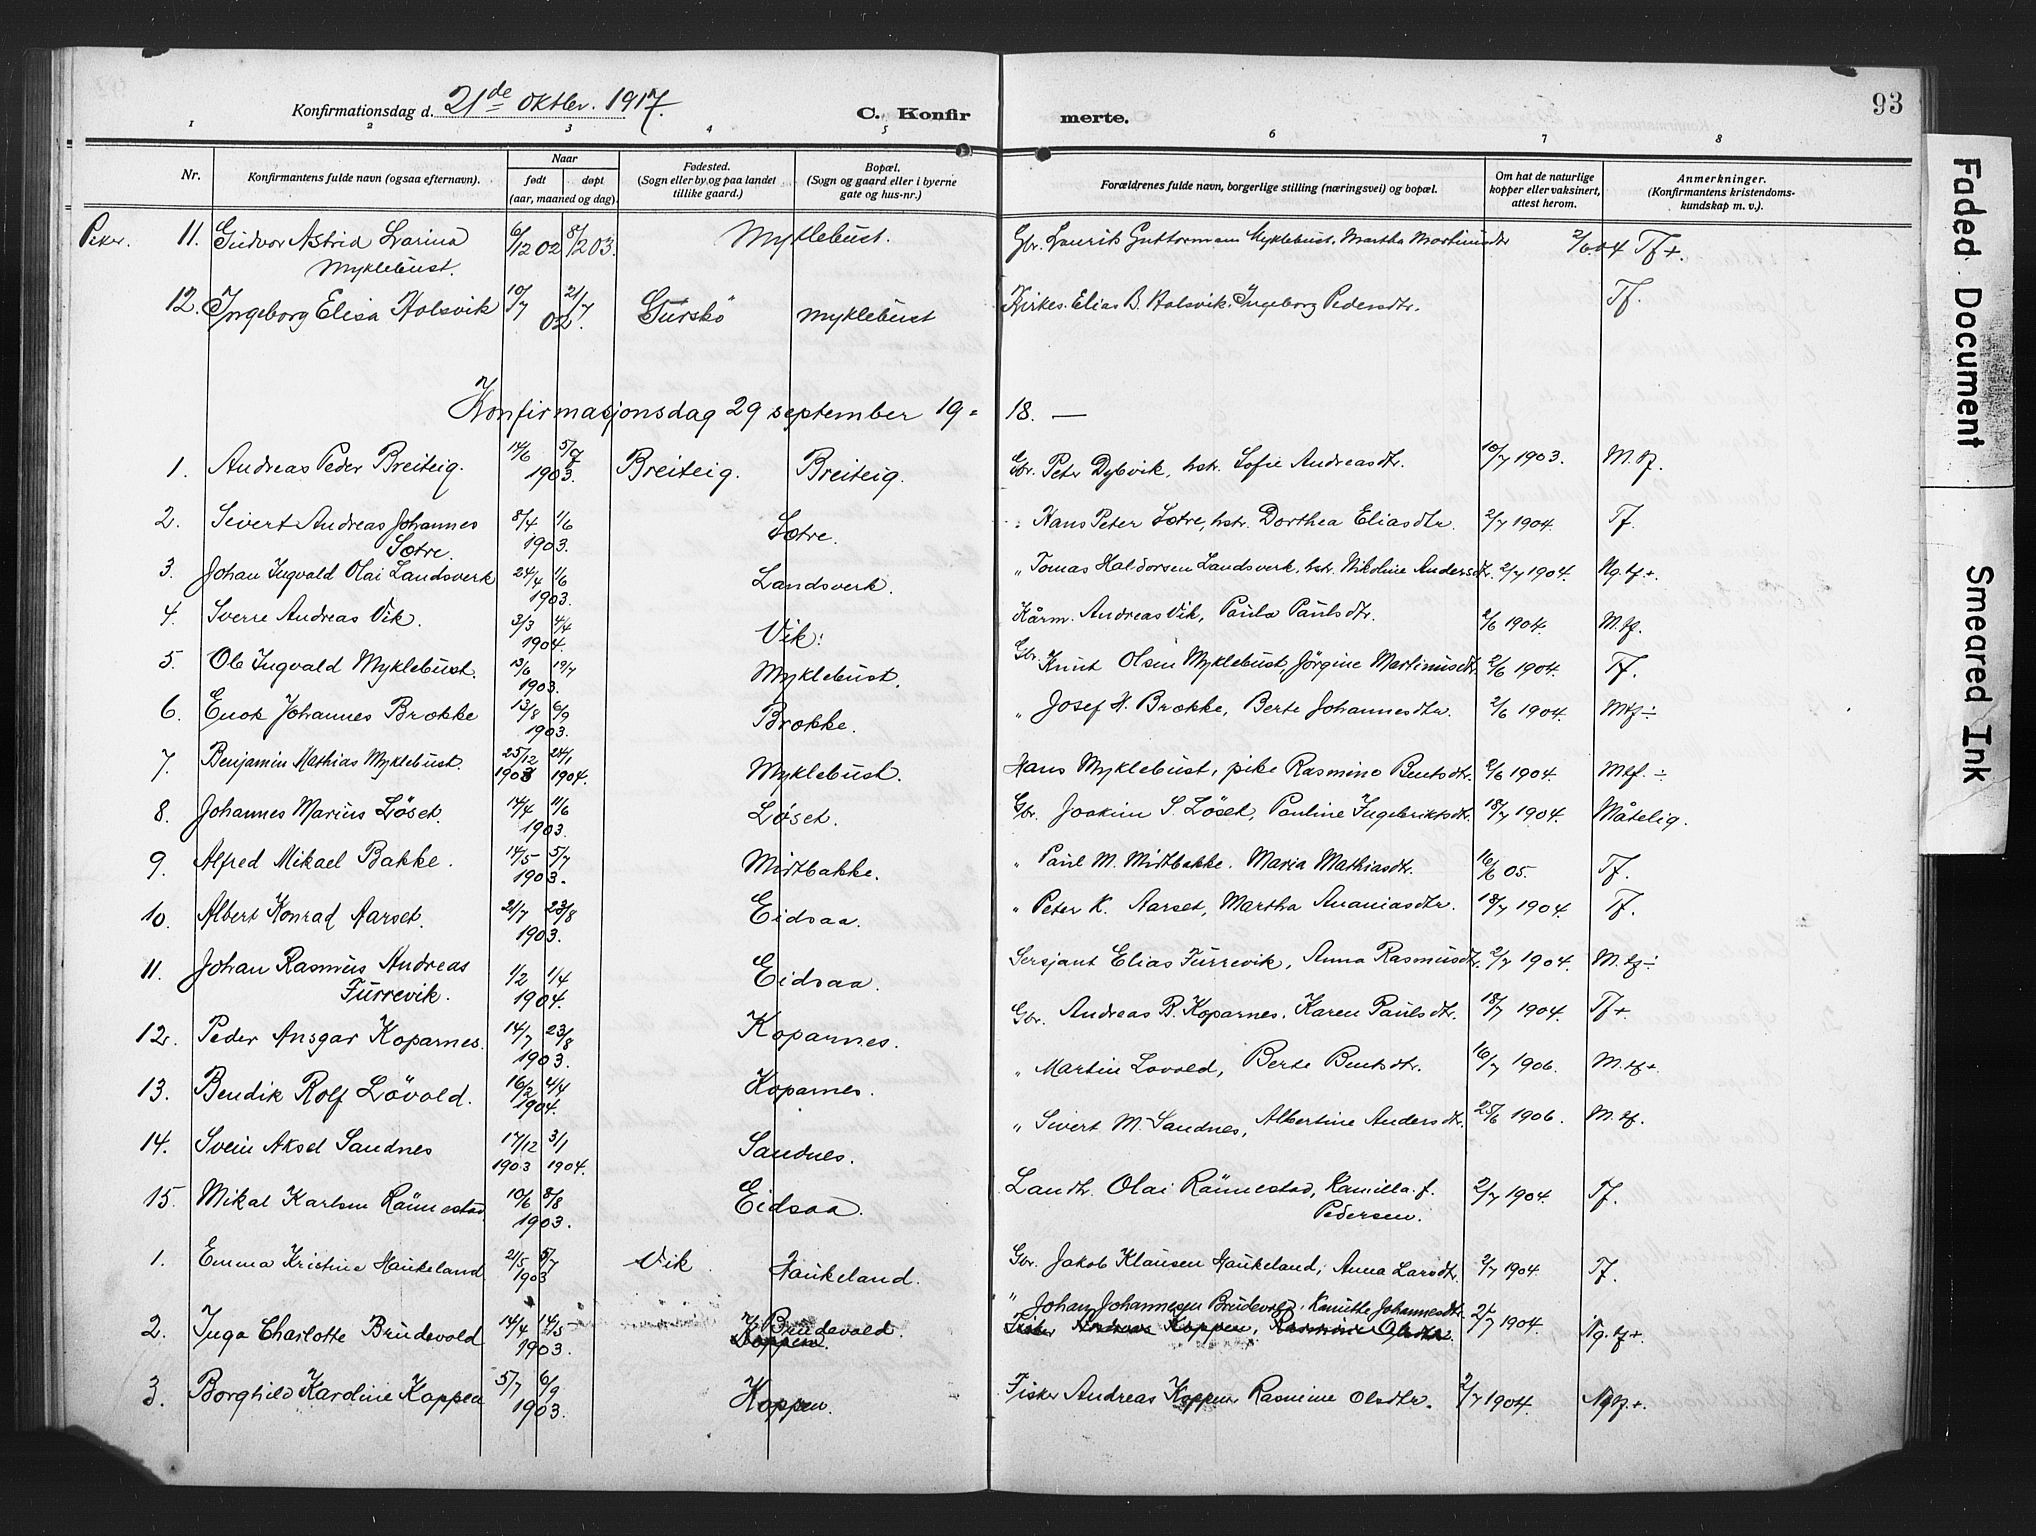 Konfirmationsdag d. 21de Oktbr. 1917.
C. Konfirmerte.
93
1 2 3 4 5 6 7 8
Nr.
Konfirmantens fulde navn (ogsaa efternavn).
Naar
født
døpt
(aar, maaned og dag).
Fødested.
(Sogn eller by og paa landet
tillike gaard.)
Bopæl.
(Sogn og gaard eller i byerne
gate og hus-nr.)
Forældrenes fulde navn, borgerlige stilling (næringsvei) og bopæl.
Om hat de naturlige
kopper eller vaksinert,
attest herom.
Anmerkninger.
(Konfirmantens kristendoms-
kundskap m. v.).
11. Gudvor Astrid Larina 6/12 02 8/2 03. Myklebust. Gbr. Laurits Guttormsen Myklebust, Martha Martinusdtr 2/6 04 Tf+.
Myklebust.
12. Ingeborg Elisa Holsvik 10/7 21/7 02. Gurskö Myklebust Kirkes. Elias B. Holsvik. Ingeborg Pedersdtr. Tf.
Konfirmasjonsdag 29 september 19= 18. —
1. Andreas Peder Breiteig. 14/6 5/7 1903. Breiteig. Breiteig. Gbr. Peter Dybvik, hstr. Sofie Andreasdtr. 10/7 1903. M.tf.
2. Sivert Andreas Johannes 8/4 1/6 1903. Sætre. " Hans Peter Sætre, hstr. Dorthea Eliasdtr. 2/7 1904. Tf.
Sætre.
3. Johan Ingvald Olai Landsverk 24/4 1/6 1903. Landsverk. " Tomas Haldorsen Landsverk, hstr. Nikoline Andersdtr. 2/7 1904. Ng.tf+.
4. Sverre Andreas Vik. 3/3 4/4 1904. Vik. Kårm. Andreas Vik, Paula Paulsdtr. 2/6 1904. M.tf.
5. Ole Ingvald Myklebust. 13/6 19/7 1903. Myklebust. Gbr. Knut Olsen Myklebust, Jörgine Martinusdtr. 2/6 1904. Tf.
6. Enok Johannes Brække 13/8 6/9 1903. Brække. " Josef H. Brække, Berte Johannesdtr. 2/6 1904. Mtf÷
7. Benjamin Mathias Myklebust. 25/12 1903 24/1 1904. Myklebust. Hans Myklebust, pike Rasmine Bentsdtr. 2/6 1904. Mtf.÷
8. Johannes Marius Løset. 14/4 11/6 1903. Løset. Gbr. Joakim S. Løset, Pauline Ingebriktsdtr. 18/7 1904. Måtelig.
9. Alfred Mikael Bakke. 14/5 5/7 1903. Midtbakke. " Paul M. Midtbakke. Maria Mathiasdtr. 16/6 05. Tf.
10. Albert Konrad Aarset. 21/7 23/8 1903. Eidsaa. " Peter K. Aarset, Martha Ananiasdtr. 18/7 1904. Tf.
11. Johan Rasmus Andreas 1/2 1/4 1904. Eidsaa. Sersjant Elias Furrevik, Anna Rasmusdtr. 2/7 1904. M.tf÷
Furrevik.
12. Peder Ansgar Koparnes. 14/7 23/8 1903. Koparnes. Gbr. Andreas B. Koparnes. Karen Paulsdtr. 18/7 1904. Tf+.
13. Bendik Rolf Lövold. 16/2 4/4 1904. Koparnes. " Martin Lovold, Berte Bentsdtr. 16/7 1906. M.tf+.
14. Svein Aksel Sandnes 17/12 1903 3/1 1904. Sandnes. " Sivert M. Sandnes, Albertine Andersdtr. 25/6 1906. M.tf.
15. Mikal Karlsen Rønnestad. 10/6 8/8 1903. Eidsaa. Landh. Olai Rønnestad, Kamilla f. 2/7 1904. Tf.
Pedersen.
1. Emma Kristine Haukeland 21/5 5/7 1903 Vik. Haukeland. Gbr. Jakob Klausen Haukeland, Anna Larsdtr. 2/7 1904. Tf.
2. Inga Charlotte Brudevold 14/4 14/5 1903. Brudevold. " Johan Johannesen Brudevold, Knuthe Johannesdtr. 2/7 1904. Ng.tf+.
Koppen. Fisker Andreas Koppen, Rasmine Olsdtr.
3. Borghild Karoline Koppen 5/7 6/9 1903. Koppen. Fisker Andreas Koppen Rasmine Olsdtr. 2/7 1904. Ngtf.+.
Faded Document
Smeared Ink